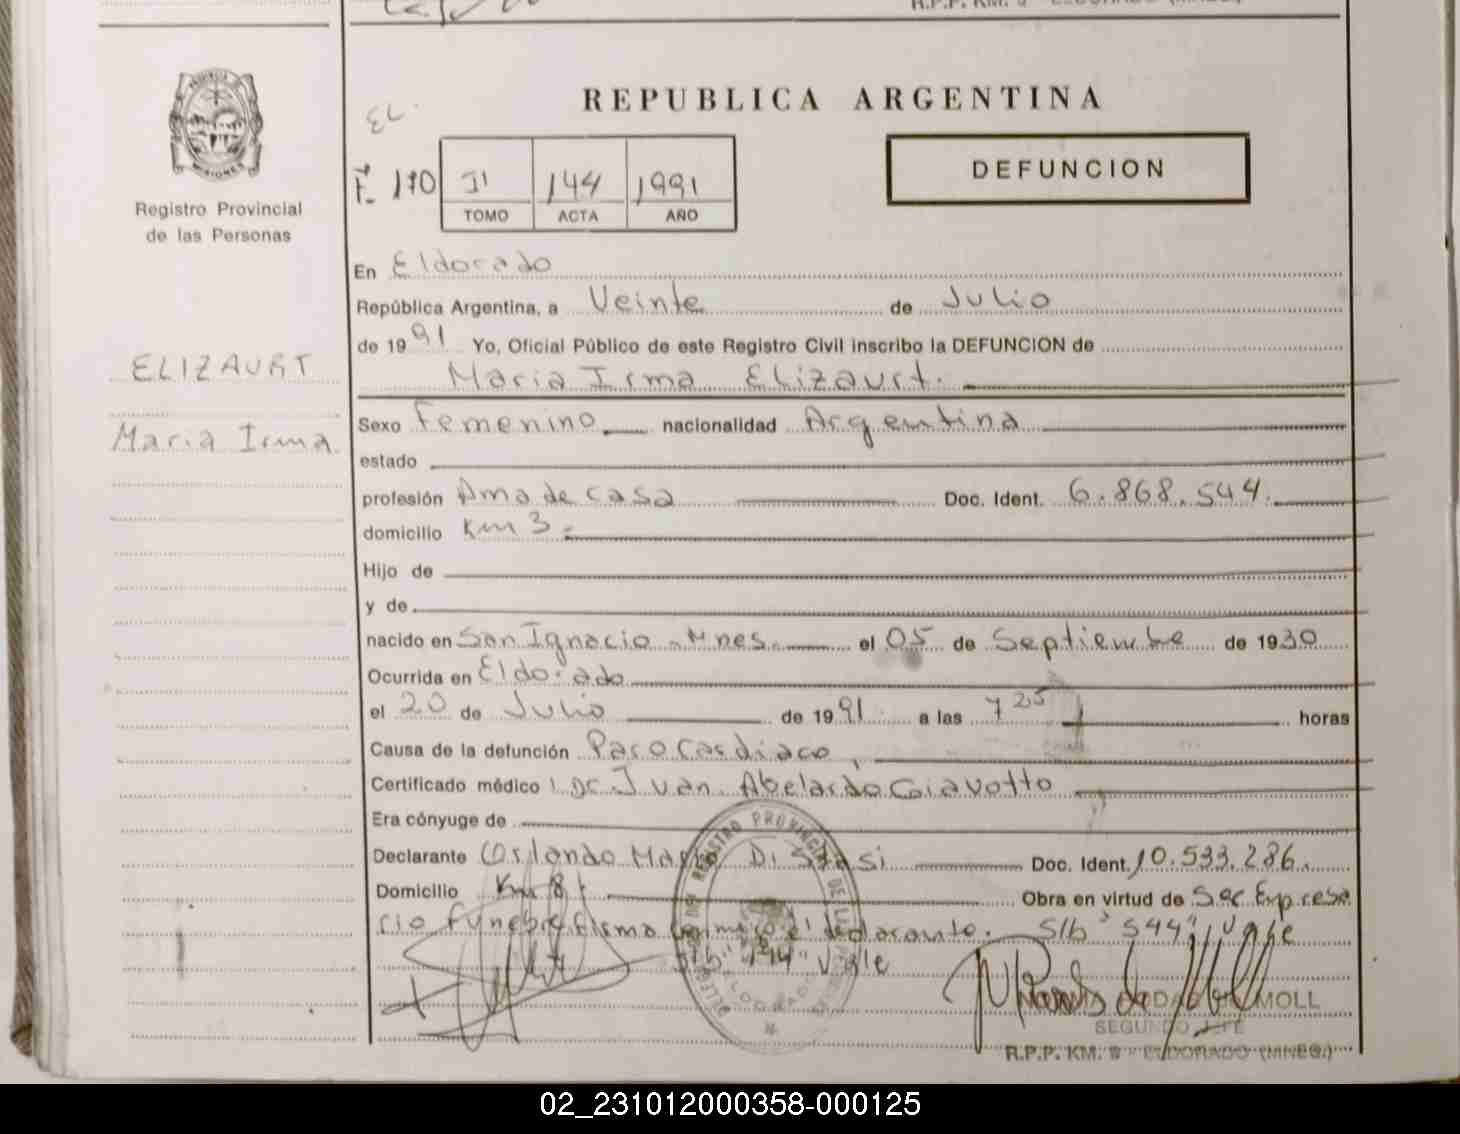 R.P.P. KM. 9 - ELDORADO (MNES.)
REPUBLICA ARGENTINA
EL.
F. 170
II
144
1991
TOMO
ACTA
AÑO
DEFUNCION
PROVINCIA DE MISIONES
Registro Provincial
de las Personas
ELIZAURT
Maria Irma
En Eldorado
República Argentina, a Veinte de Julio
de 1991 Yo, Oficial Público de este Registro Civil inscribo la DEFUNCION de
Maria Irma Elizaurt.
Sexo Femenino nacionalidad Argentina
estado
profesión Ama de casa Doc. Ident. 6.868.544.
domicilio Km 3.
Hijo de
y de
nacido en San Ignacio - Mnes. el 05 de Septiembre de 1930
Ocurrida en Eldorado
el 20 de Julio de 1991 a las 7 25 horas
Causa de la defunción Paro Cardiaco,
Certificado médico Dr. Juan Abelardo Giavotto
Era cónyuge de
Declarante Orlando Mario Di Stasi Doc. Ident. 10.533.286.
Domicilio Km 8. Obra en virtud de Ser Empresa
rio Funebre firma el declarante. S/b "544" Vale
S/b "144" Vale
DELEGACION REGISTRO PROVINCIAL DE LAS PERSONAS
ELDORADO
MOLL
SEGUNDO JEFE
R.P.P. KM. 9 - ELDORADO (MNES.)
02_231012000358-000125